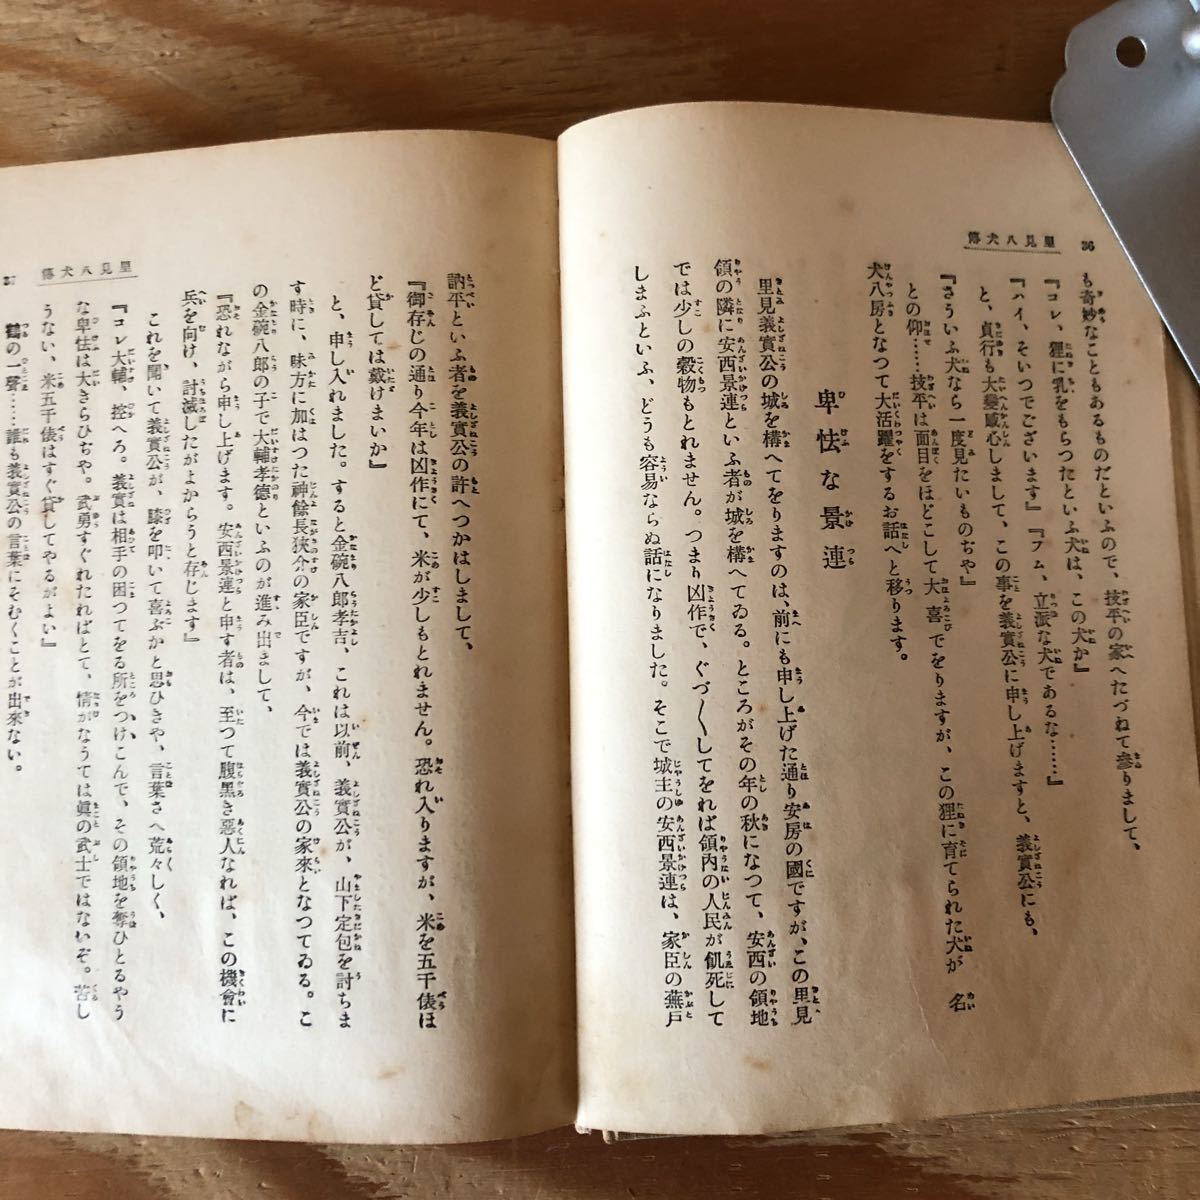 36
里見八犬傳
も奇妙なこともあるものだといふので、技平の家へたづねて參りまして、
『コレ、狸に乳をもらつたといふ犬は、この犬か』
『ハイ、そいつでございます』『フム、立派な犬であるな……』
と、貞行も大變感心しまして、この事を義實公に申し上げますと、義實公にも、
『さういふ犬なら一度見たいものぢや』
との仰……技平は面目をほどこして大喜でをりますが、この狸に育てられた犬が名
犬八房となつて大活躍をするお話へと移ります。
卑怯な景連
里見義實公の城を構へてをりますのは、前にも申し上げた通り安房の國ですが、この里見
領の隣に安西景連といふ者が城を構へてゐる。ところがその年の秋になつて、安西の領地
では少しの穀物もとれません。つまり凶作で、ぐづ〳〵してをれば領内の人民が飢死して
しまふといふ、どうも容易ならぬ話になりました。そこで城主の安西景連は、家臣の蕪戸
訥平といふ者を義實公の許へつかはしまして、
『御存じの通り今年は凶作にて、米が少しもとれません。恐れ入りますが、米を五千俵ほ
ど貸しては戴けまいか』
と、申し入れました。すると金碗八郎孝吉、これは以前、義實公が、山下定包を討ちま
す時に、味方に加はつた神餘長狹介の家臣ですが、今では義實公の家來となつてゐる。こ
の金碗八郎の子で大輔孝德といふのが進み出まして、
『恐れながら申し上げます。安西景連と申す者は、至つて腹黑き惡人なれば、この機會に
兵を向け、討滅したがよからうと存じます』
これを聞いて義實公が、膝を叩いて喜ぶかと思ひきや、言葉さへ荒々しく、
『コレ大輔、控へろ。義實は相手の困つてをる所をつけこんで、その領地を奪ひとるやう
な卑怯は大きらひぢや。武勇すぐれたればとて、情がなうては眞の武士ではないぞ。苦し
うない、米五千俵はすぐ貸してやるがよい』
鶴の一聲……誰も義實公の言葉にそむくことが出來ない。
里見八犬傳
37